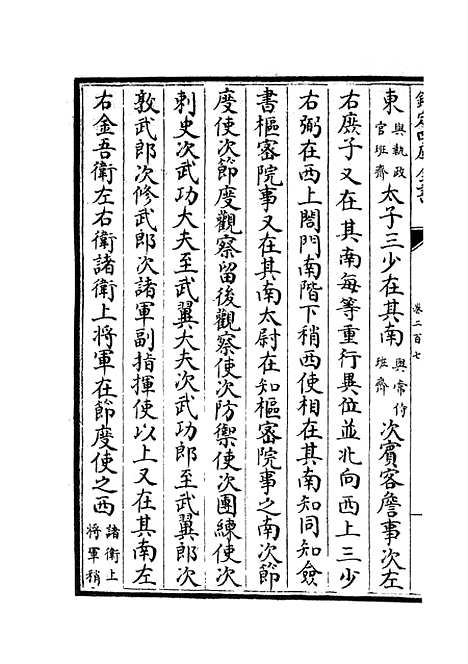 東與執政官班齊太子三少在其南與常伯班齊次賓客詹事次左
右庶子又在其南每等重行異位並北向西上三少
右弼在西上閤門南階下稍西使相在其南知同知僉
書樞密院事又在其南太尉在知樞密院事之南次節
度使次節度觀察留後觀察使次防禦使次團練使次
刺史次武功大夫至武翼大夫次武功郎至武翼郎次
敦武郎次修武郎次諸軍副指揮使以上又在其南左
右金吾衛左右衛諸衛上將軍在節度使之西諸衛上將軍稍
卷二百七